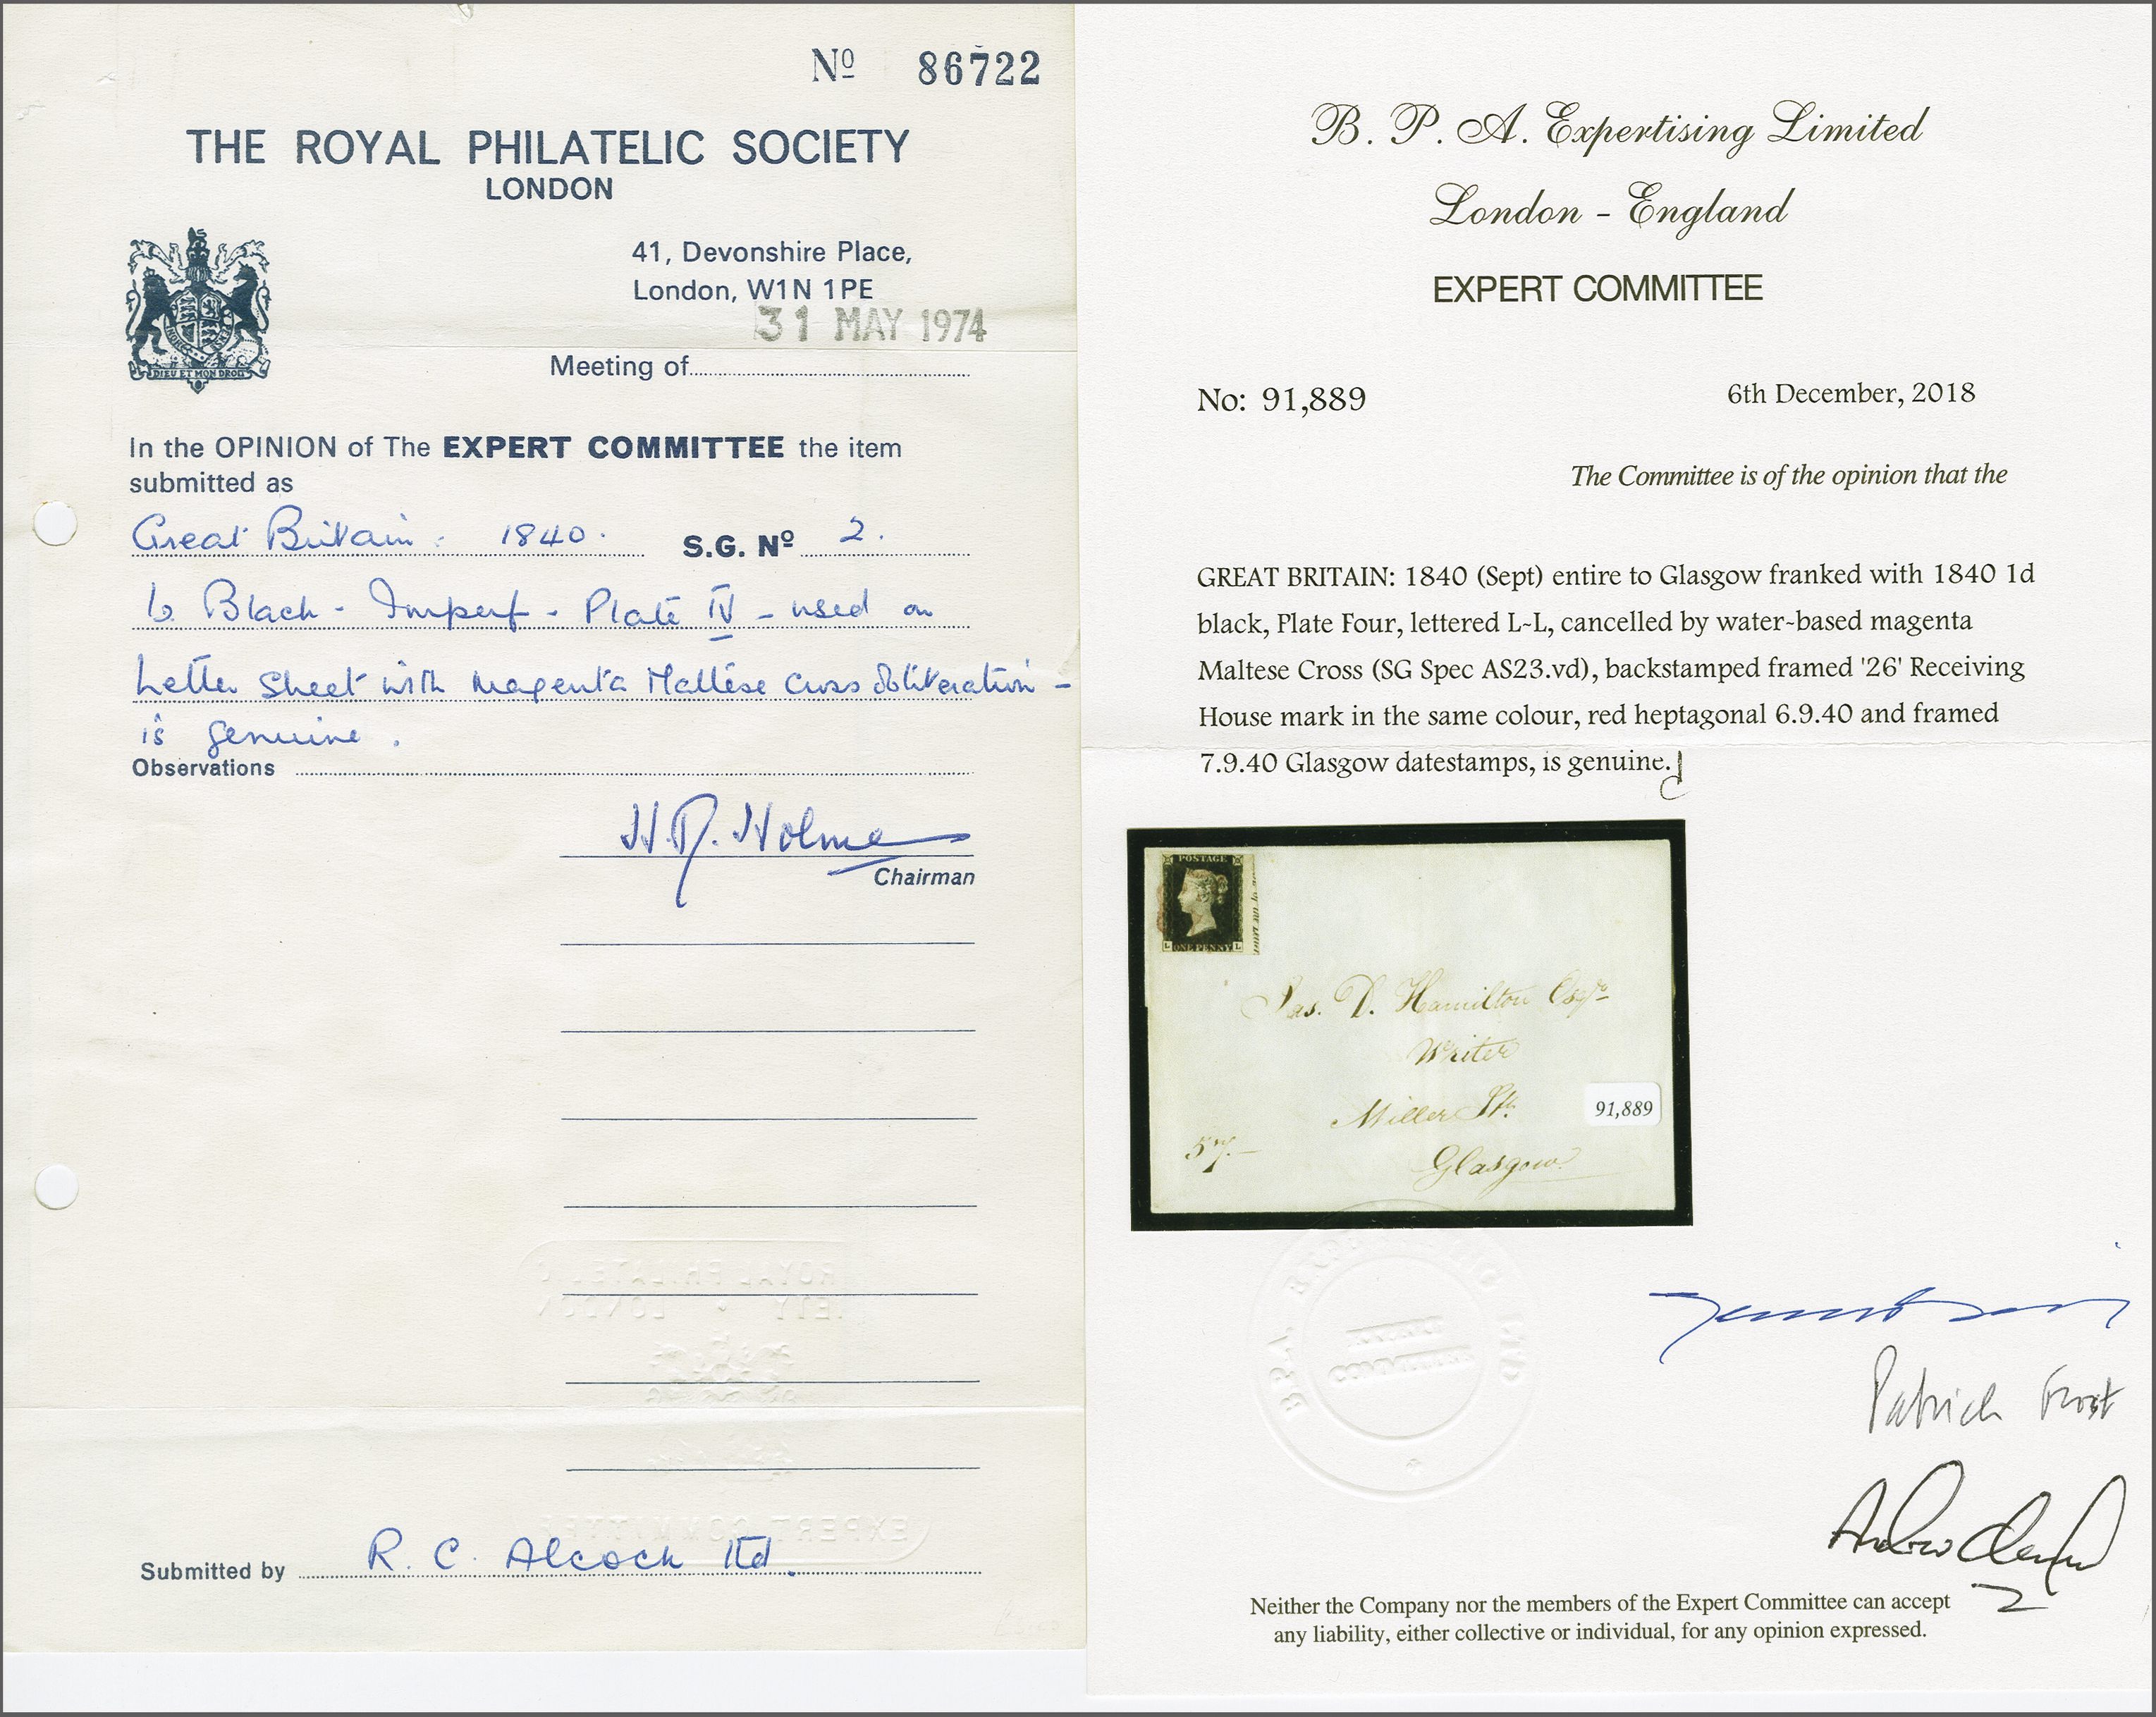 Nº 86722
THE ROYAL PHILATELIC SOCIETY
LONDON
41, Devonshire Place,
London, W1N 1PE
31 MAY 1974
Meeting of
DIEU ET MON DROIT
In the OPINION of The EXPERT COMMITTEE the item
submitted as
Great Britain. 1840. S.G. Nº 2.
Black - Imperf - Plate IV - used on
Letter Sheet with Magenta Maltese Cross obliteration -
is genuine.
Observations
H.R. Holme
Chairman
ROYAL PHILATELIC
LONDON
EXPERT COMMITTEE
Submitted by R. C. Alcock Ltd.
B. P. A. Expertising Limited
London - England
EXPERT COMMITTEE
No: 91,889 6th December, 2018
The Committee is of the opinion that the
GREAT BRITAIN: 1840 (Sept) entire to Glasgow franked with 1840 1d
black, Plate Four, lettered L-L, cancelled by water-based magenta
Maltese Cross (SG Spec AS23.vd), backstamped framed '26' Receiving
House mark in the same colour, red heptagonal 6.9.40 and framed
7.9.40 Glasgow datestamps, is genuine.
POSTAGE
L ONE PENNY L
Jas. D. Hamilton Esqre
Writer
Miller St.
91,889
57.-
Glasgow
B.P.A. EXPERTISING LTD
EXPERT
COMMITTEE
Patrick Frost
Neither the Company nor the members of the Expert Committee can accept
any liability, either collective or individual, for any opinion expressed.